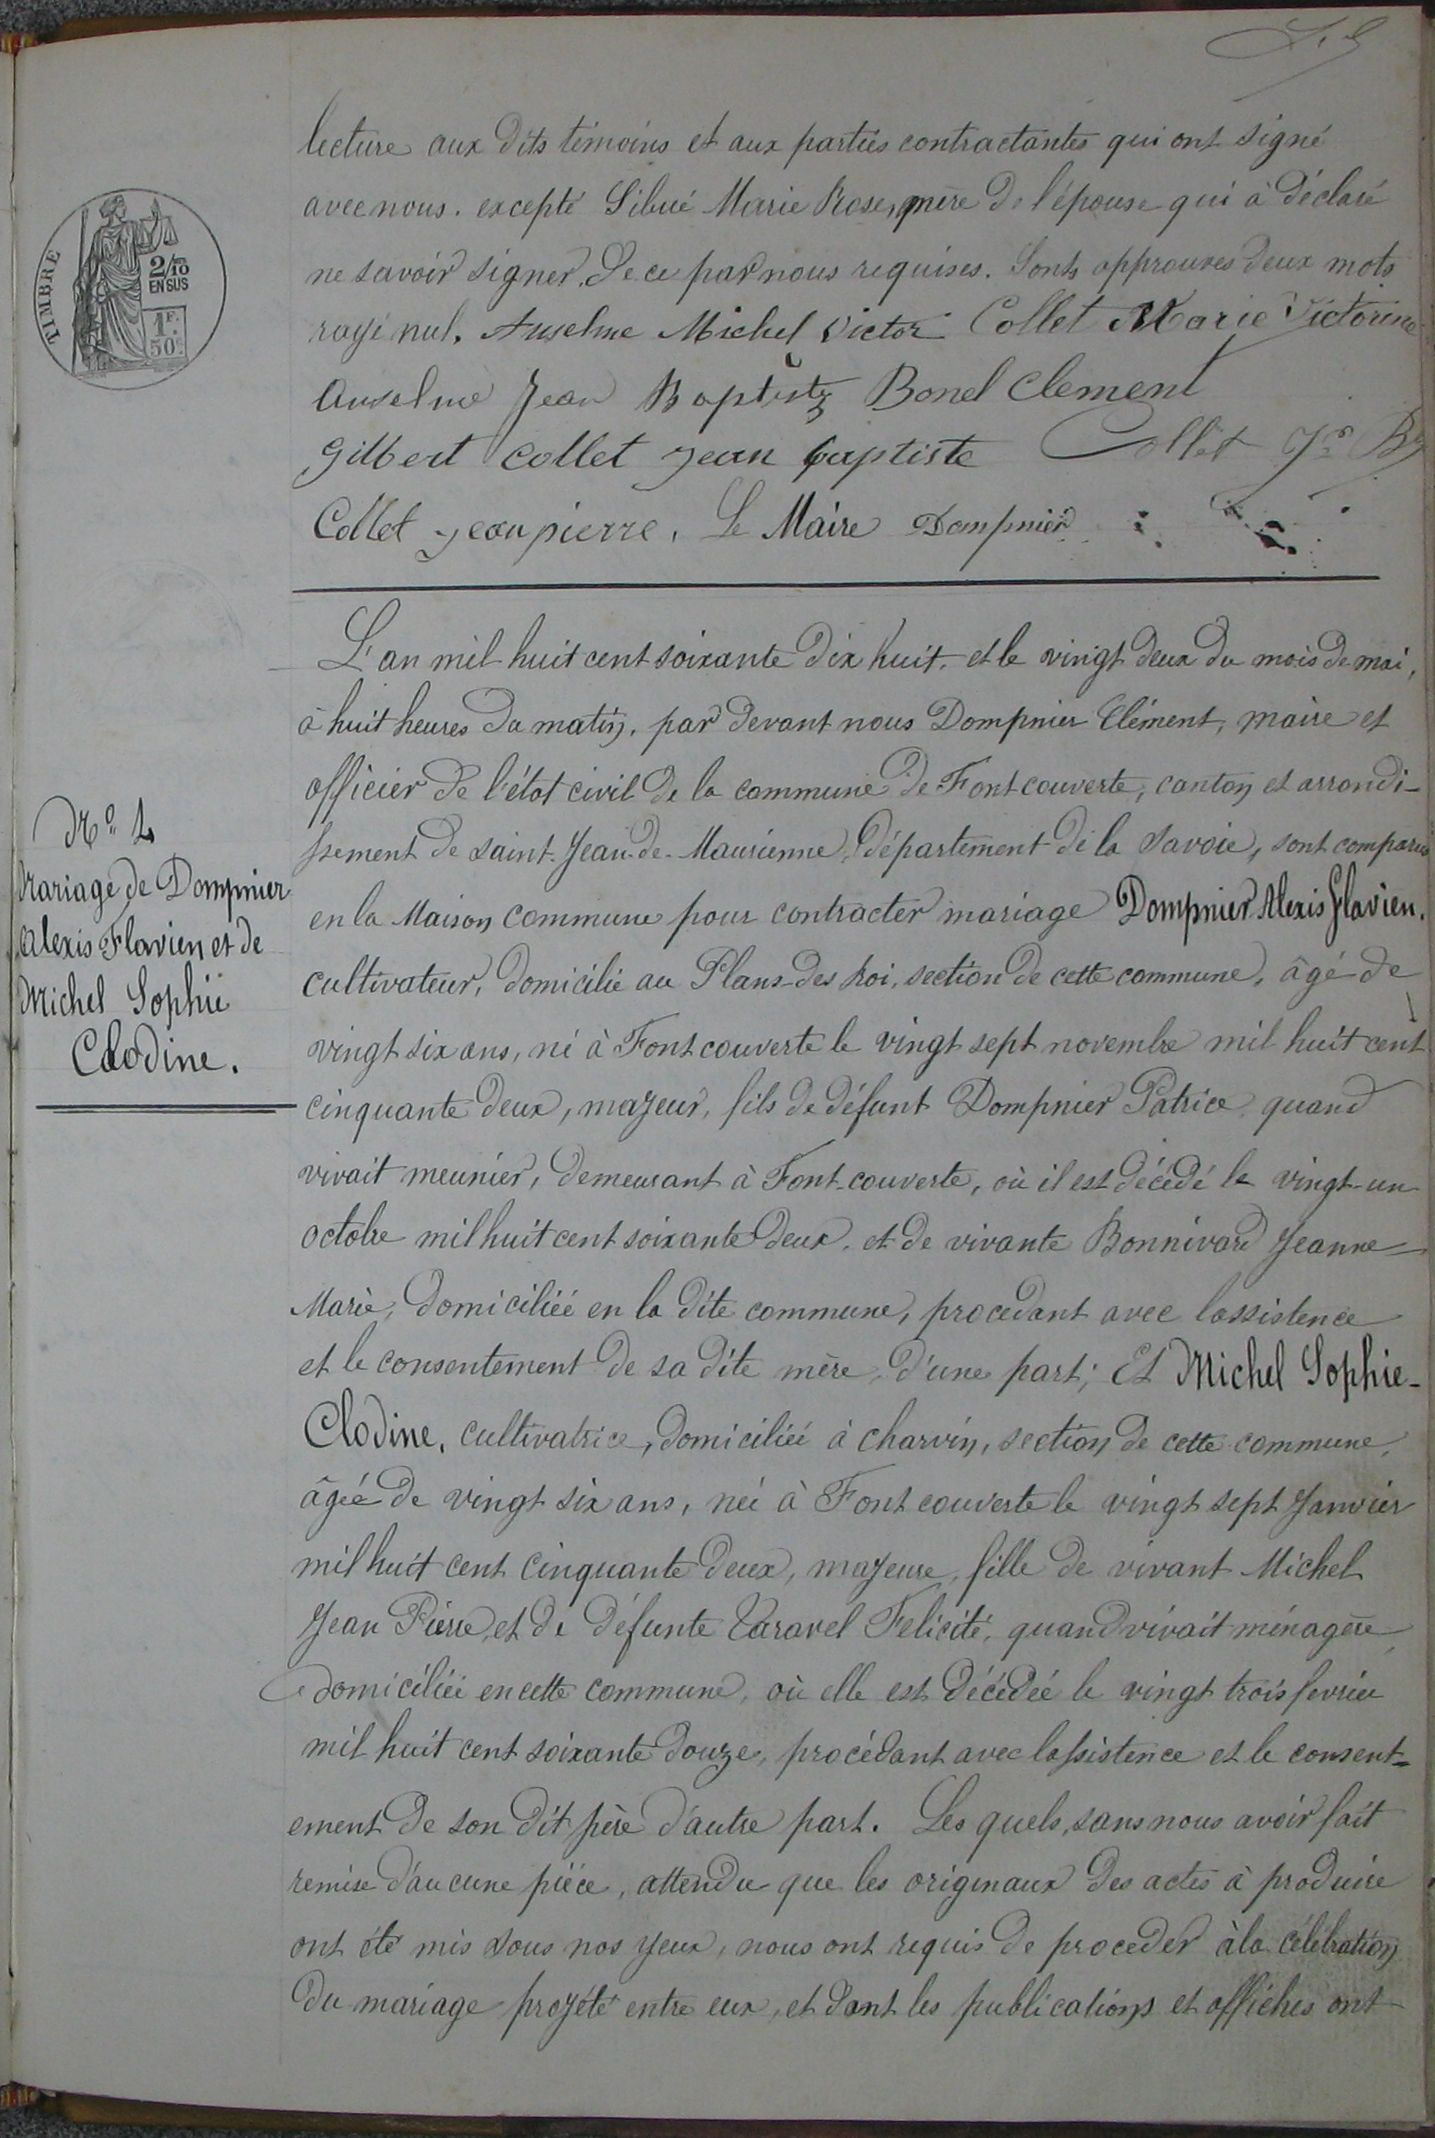 lecture aux dits témoins et aux parties contractantes qui ont signé
avec nous. excepté Marie Rose, mère de l'épouse qui à déclaré
ne savoir signer. De ce par nous requises. Sonts approuvés deux mots
rayé nul. Anselme Michel Victor Collet Marie Victorine
Anselme Jean Baptiste Bonel Clement
Gilbert Collet Jean baptiste Collet Jn Bte
Collet jean pierre. Le Maire Dompnier
TIMBRE
2/10
EN SUS
1F.
50c.
L'an mil huit cent soixante dix huit. et le vingt deux du mois de mai,
à huit heures du matin, par devant nous Dompnier Clément, maire et
officier de l'état civil de la commune de Fontcouverte, canton et arrondi-
ssement de saint-Jean-de-Maurienne, département de la Savoie, sont comparus
en la Maison commune pour contracter mariage Dompnier Alexis Flavien.
cultivateur, domicilié au Plans-des Roi, section de cette commune, âgé de
vingt six ans, né à Fontcouverte le vingt sept novembre mil huit cent
cinquante deux, majeur, fils de défunt Dompnier Patrice quand
vivait meunier, demeurant à Font-couverte, où il est décédé le vingt-un
octobre mil huit cent soixante deux. et de vivante Bonnivard Jeanne
Marie, domiciliée en la dite commune, procedant avec lassistence
et le consentement de sa dite mère, d'une part; Et Michel Sophie-
Clodine, cultivatrice, domiciliée à charvin, section de cette commune,
âgée de vingt six ans, née à Fontcouverte le vingt sept Janvier
mil huit cent cinquante deux, majeure, fille de vivant Michel
Jean Pierre, et de défunte Varavel Felicité, quand vivait ménagère
domiciliée en cette commune, où elle est décédée le vingt trois fevrier
mil huit cent soixante douze, procédant avec lassistence et le consent=
ement de son dit père d'autre part. Les quels, sans nous avoir fait
remise d'aucune pièce, attendu que les originaux des actes à produire
ont été mis sous nos yeux, nous ont requis de proceder à la célébration
du mariage projété entre eux, et dont les publications et affiches ont
Mariage de Dompnier
Alexis Flavien et de
Michel Sophie
Clodine.